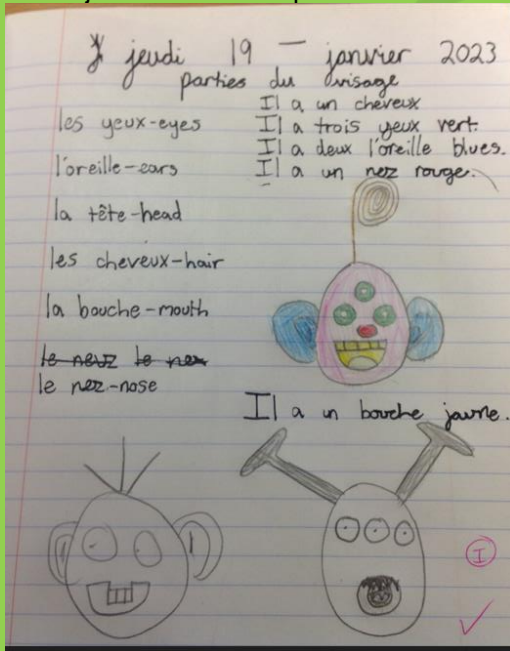 jeudi 19 – janvier 2023
parties du visage
les yeux-eyes
l'oreille-ears
la tête-head
les cheveux-hair
la bouche-mouth
le nez-nose
Il a un cheveux
Il a trois yeux vert.
Il a deux l'oreille blues.
Il a un nez rouge.
Il a un bouche jaune.
I